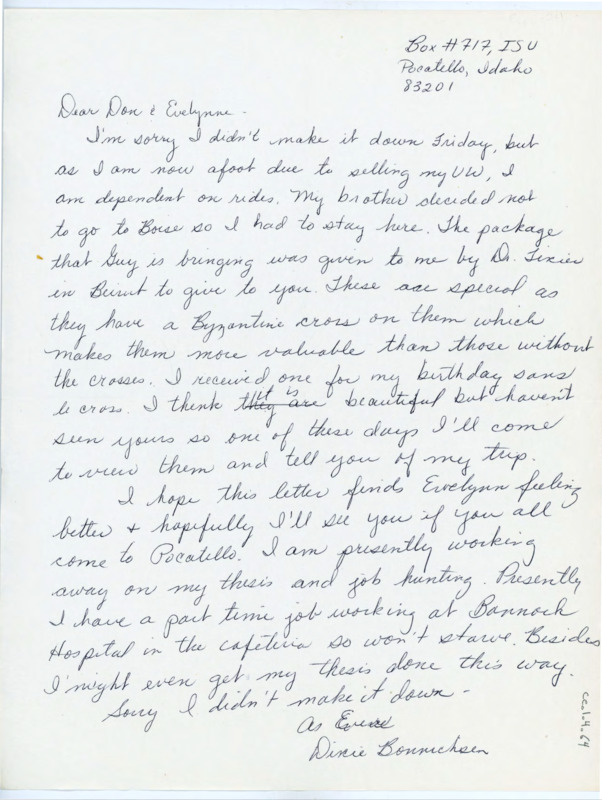 Box #717, ISU
Pocatello, Idaho
83201
Dear Don & Evelynne -
I'm sorry I didn't make it down Friday, but
as I am now afoot due to selling my VW, I
am dependent on rides. My brother decided not
to go to Boise so I had to stay here. The package
that Guy is bringing was given to me by Dr. Tixier
in Beirut to give to you. These are special as
they have a Byzantine cross on them which
makes them more valuable than those without
the crosses. I received one for my birthday sans
le cross. I think they are it is beautiful but haven't
seen yours so one of these days I'll come
to view them and tell you of my trip.
I hope this letter finds Evelynn feeling
better & hopefully I'll see you if you all
come to Pocatello. I am presently working
away on my thesis and job hunting. Presently
I have a part time job working at Bannock
Hospital in the cafeteria so won't starve. Besides
I might even get my thesis done this way.
Sorry I didn't make it down -
As Ever
Dixie Bonnichsen
cc.1.4.64